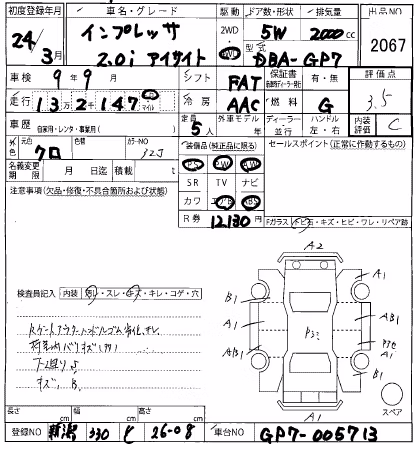 初度登録年月 車名・グレード 駆動 ドア数・形状 排気量 出品NO
24年 3月 インプレッサ 2WD 4WD 5W 2000cc 2067
2.0i アイサイト 型式 DBA-GP7
車検 9年9月 シフト FAT 保証書 有・無 評価点
走行 13万2千147 キロ マイル 冷房 AAC 燃料 G 3.5
車歴 自家用・レンタ・事業用( ) 定員 5人 外車モデル年 ディーラー・並行 ハンドル 左・右 内装評価 C
外色 元色 クロ 色替 カラーNO 32J 装備品(純正品に限る) セールスポイント(正常に作動するもの)
PS PW
名義変更期限 月 日迄 積載 t SR TV ナビ
注意事項(欠品・修復・不具合箇所および状態) カワ エアB ABS
R券 12130円
Fガラス トビ石・キズ・ヒビ・ワレ・リペア跡
A2
A1
B1
検査員記入 内装 汚レ・スレ・キズ・キレ・コゲ・穴
A1
AB1
AB1
A1
B1
キズ、B
A1
スペア
長さ cm 幅 cm 高さ cm
登録NO 新潟 330 と 26-08 車台NO GP7-005713